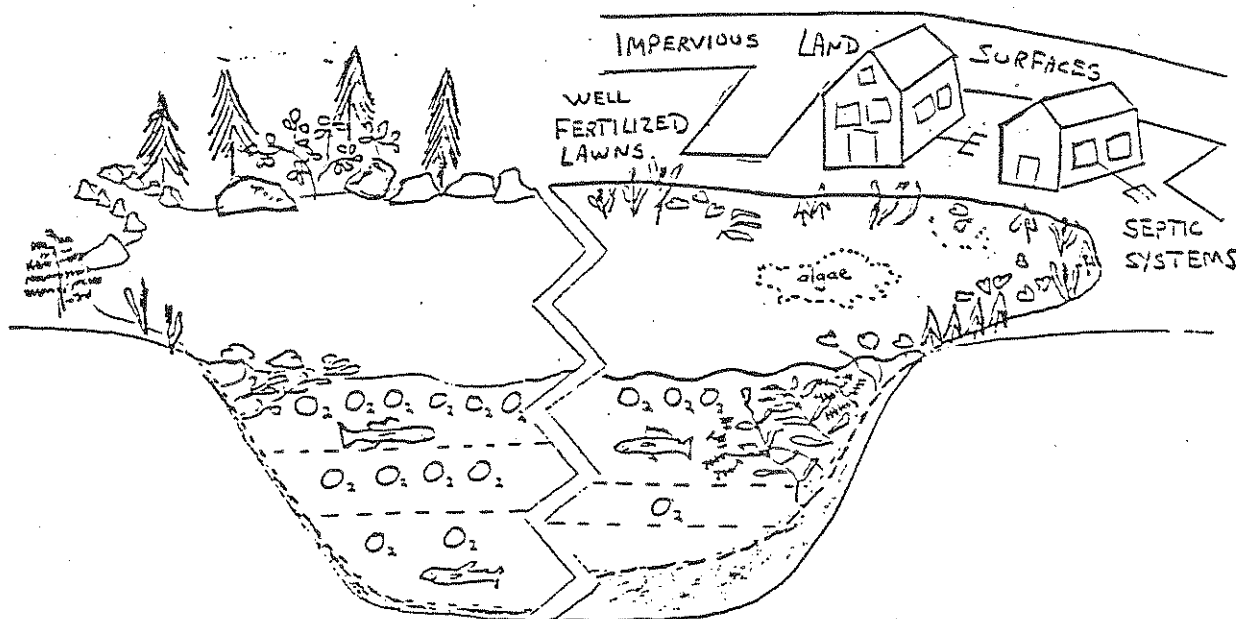 IMPERVIOUS LAND SURFACES
WELL
FERTILIZED
LAWNS
SEPTIC
SYSTEMS
algae
O₂ O₂ O₂ O₂ O₂ O₂
O₂ O₂ O₂
O₂ O₂ O₂ O₂
O₂
O₂ O₂